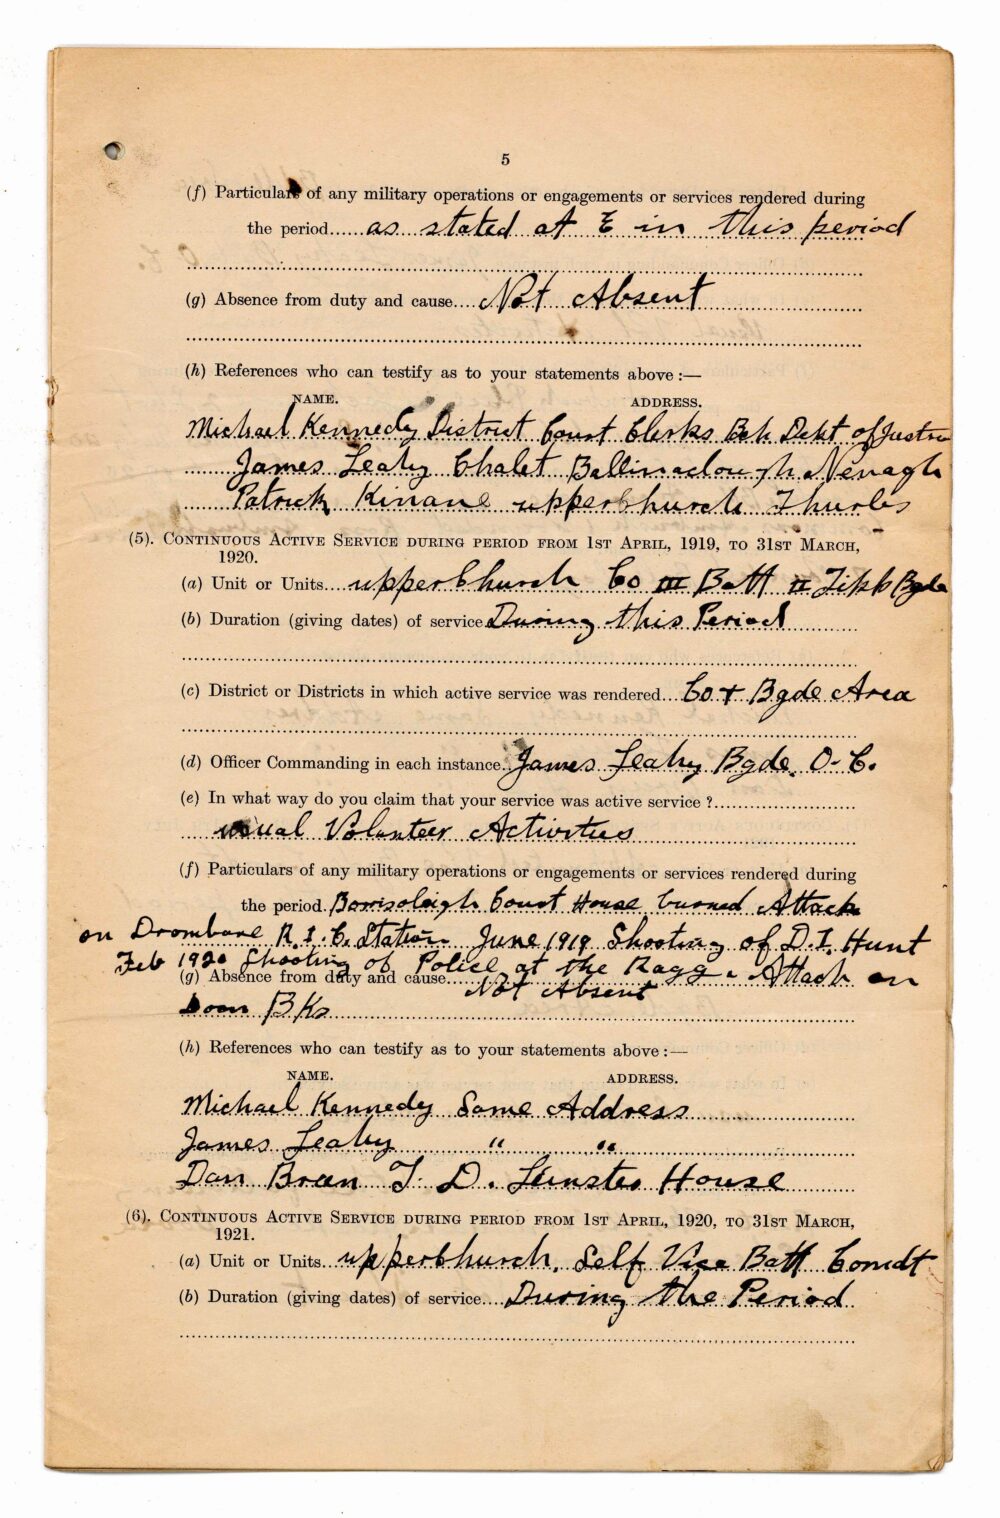 5
(f) Particulars of any military operations or engagements or services rendered during
the period as stated at E in this period
(g) Absence from duty and cause Not Absent
(h) References who can testify as to your statements above :—
NAME. ADDRESS.
Michael Kennedy District Court Clerks Bch Dept of Justice
James Leahy Chalet Ballinaclough Nenagh
Patrick Kinane upperchurch Thurles
(5). CONTINUOUS ACTIVE SERVICE DURING PERIOD FROM 1ST APRIL, 1919, TO 31ST MARCH,
1920.
(a) Unit or Units upperchurch Co III Batt II Tipp Bgde
(b) Duration (giving dates) of service During this Period
(c) District or Districts in which active service was rendered Co + Bgde Area
(d) Officer Commanding in each instance James Leahy Bgde. O-C.
(e) In what way do you claim that your service was active service ?
usual Volunteer Activities
(f) Particulars of any military operations or engagements or services rendered during
the period Borrisoleigh Court House burned Attack
on Drombane R.I.C. Station June 1919 Shooting of D.I. Hunt
Feb 1920 Shooting of Police at the Ragg. Attack on
(g) Absence from duty and cause Not Absent
Doon BKs
(h) References who can testify as to your statements above :—
NAME. ADDRESS.
Michael Kennedy Same Address
James Leahy " "
Dan Breen T.D. Leinster House
(6). CONTINUOUS ACTIVE SERVICE DURING PERIOD FROM 1ST APRIL, 1920, TO 31ST MARCH,
1921.
(a) Unit or Units upperchurch. Self Vice Batt Comdt
(b) Duration (giving dates) of service During the Period